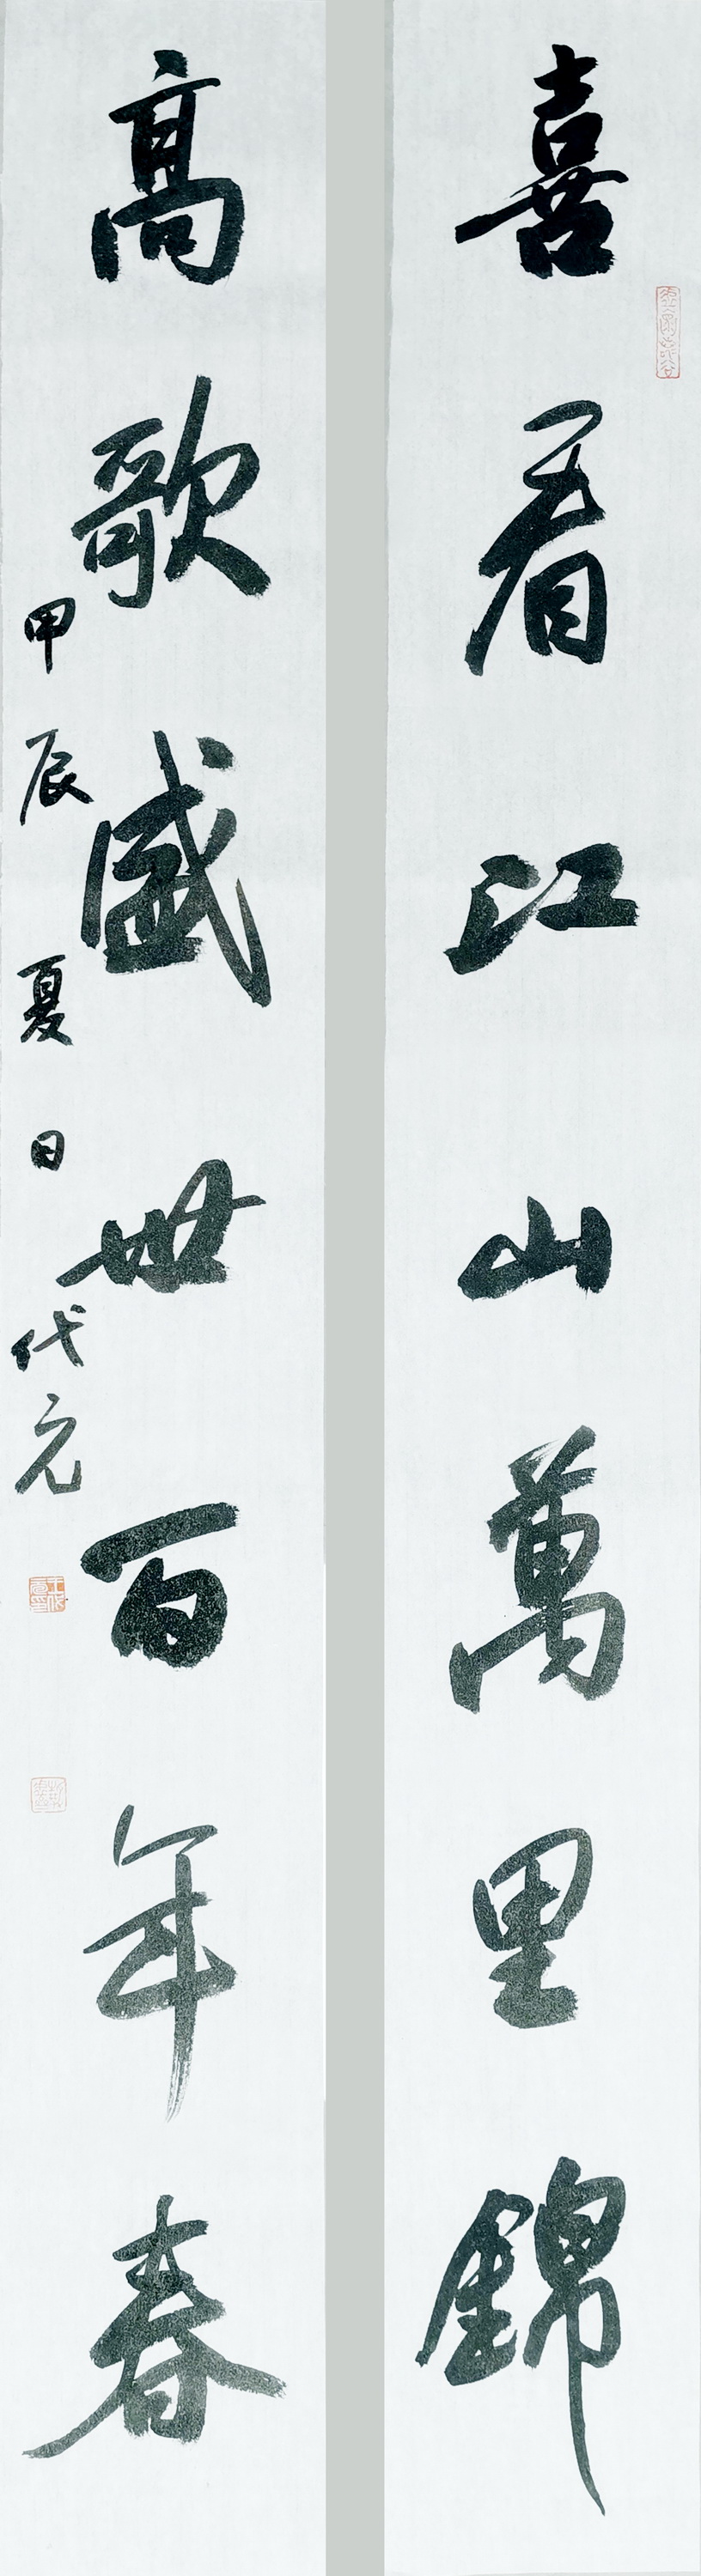 喜看江山萬里錦
高歌盛世百年春
甲辰夏日代元